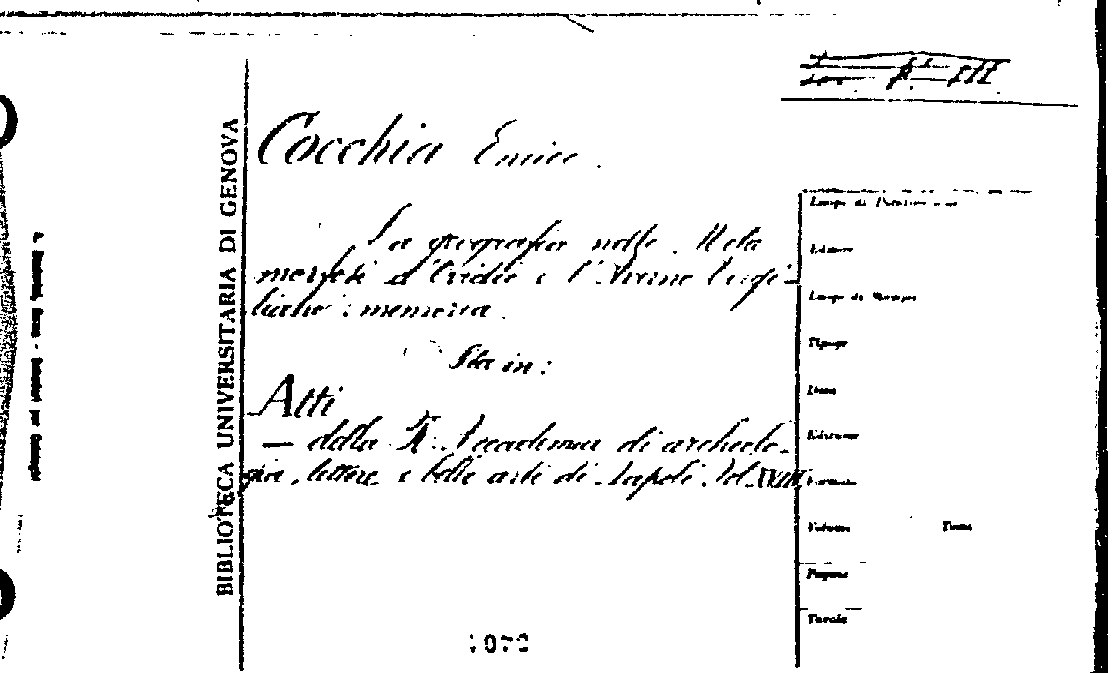 BIBLIOTECA UNIVERSITARIA DI GENOVA
Cocchia Enrico.
La geografia nelle Meta
morfosi d'Ovidio e l'Averno Virgi-
liano: memoria.
Sta in:
Atti
— della R. Accademia di archeolo-
gia, lettere e belle arti di Napoli. Vol. XVIII
Luogo di
Editore
Luogo di Stampa
Tipogr.
Data
Edizione
Formato
Volume Tomo
Pagine
Tavole